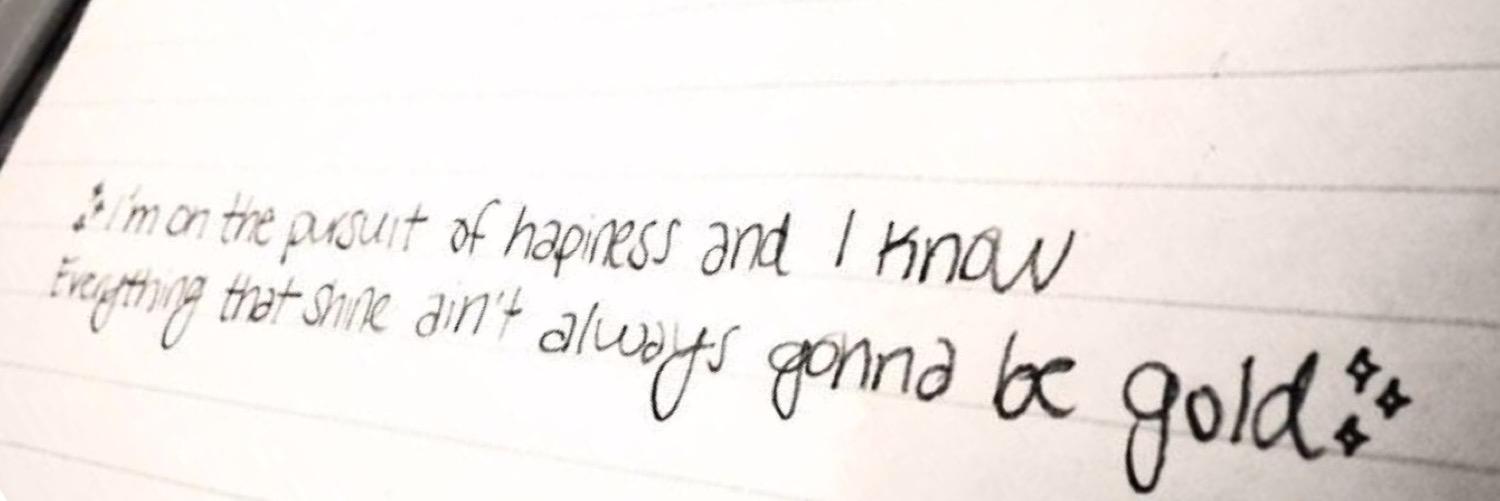 I'm on the pursuit of hapiness and I know
Everything that shine ain't always gonna be gold